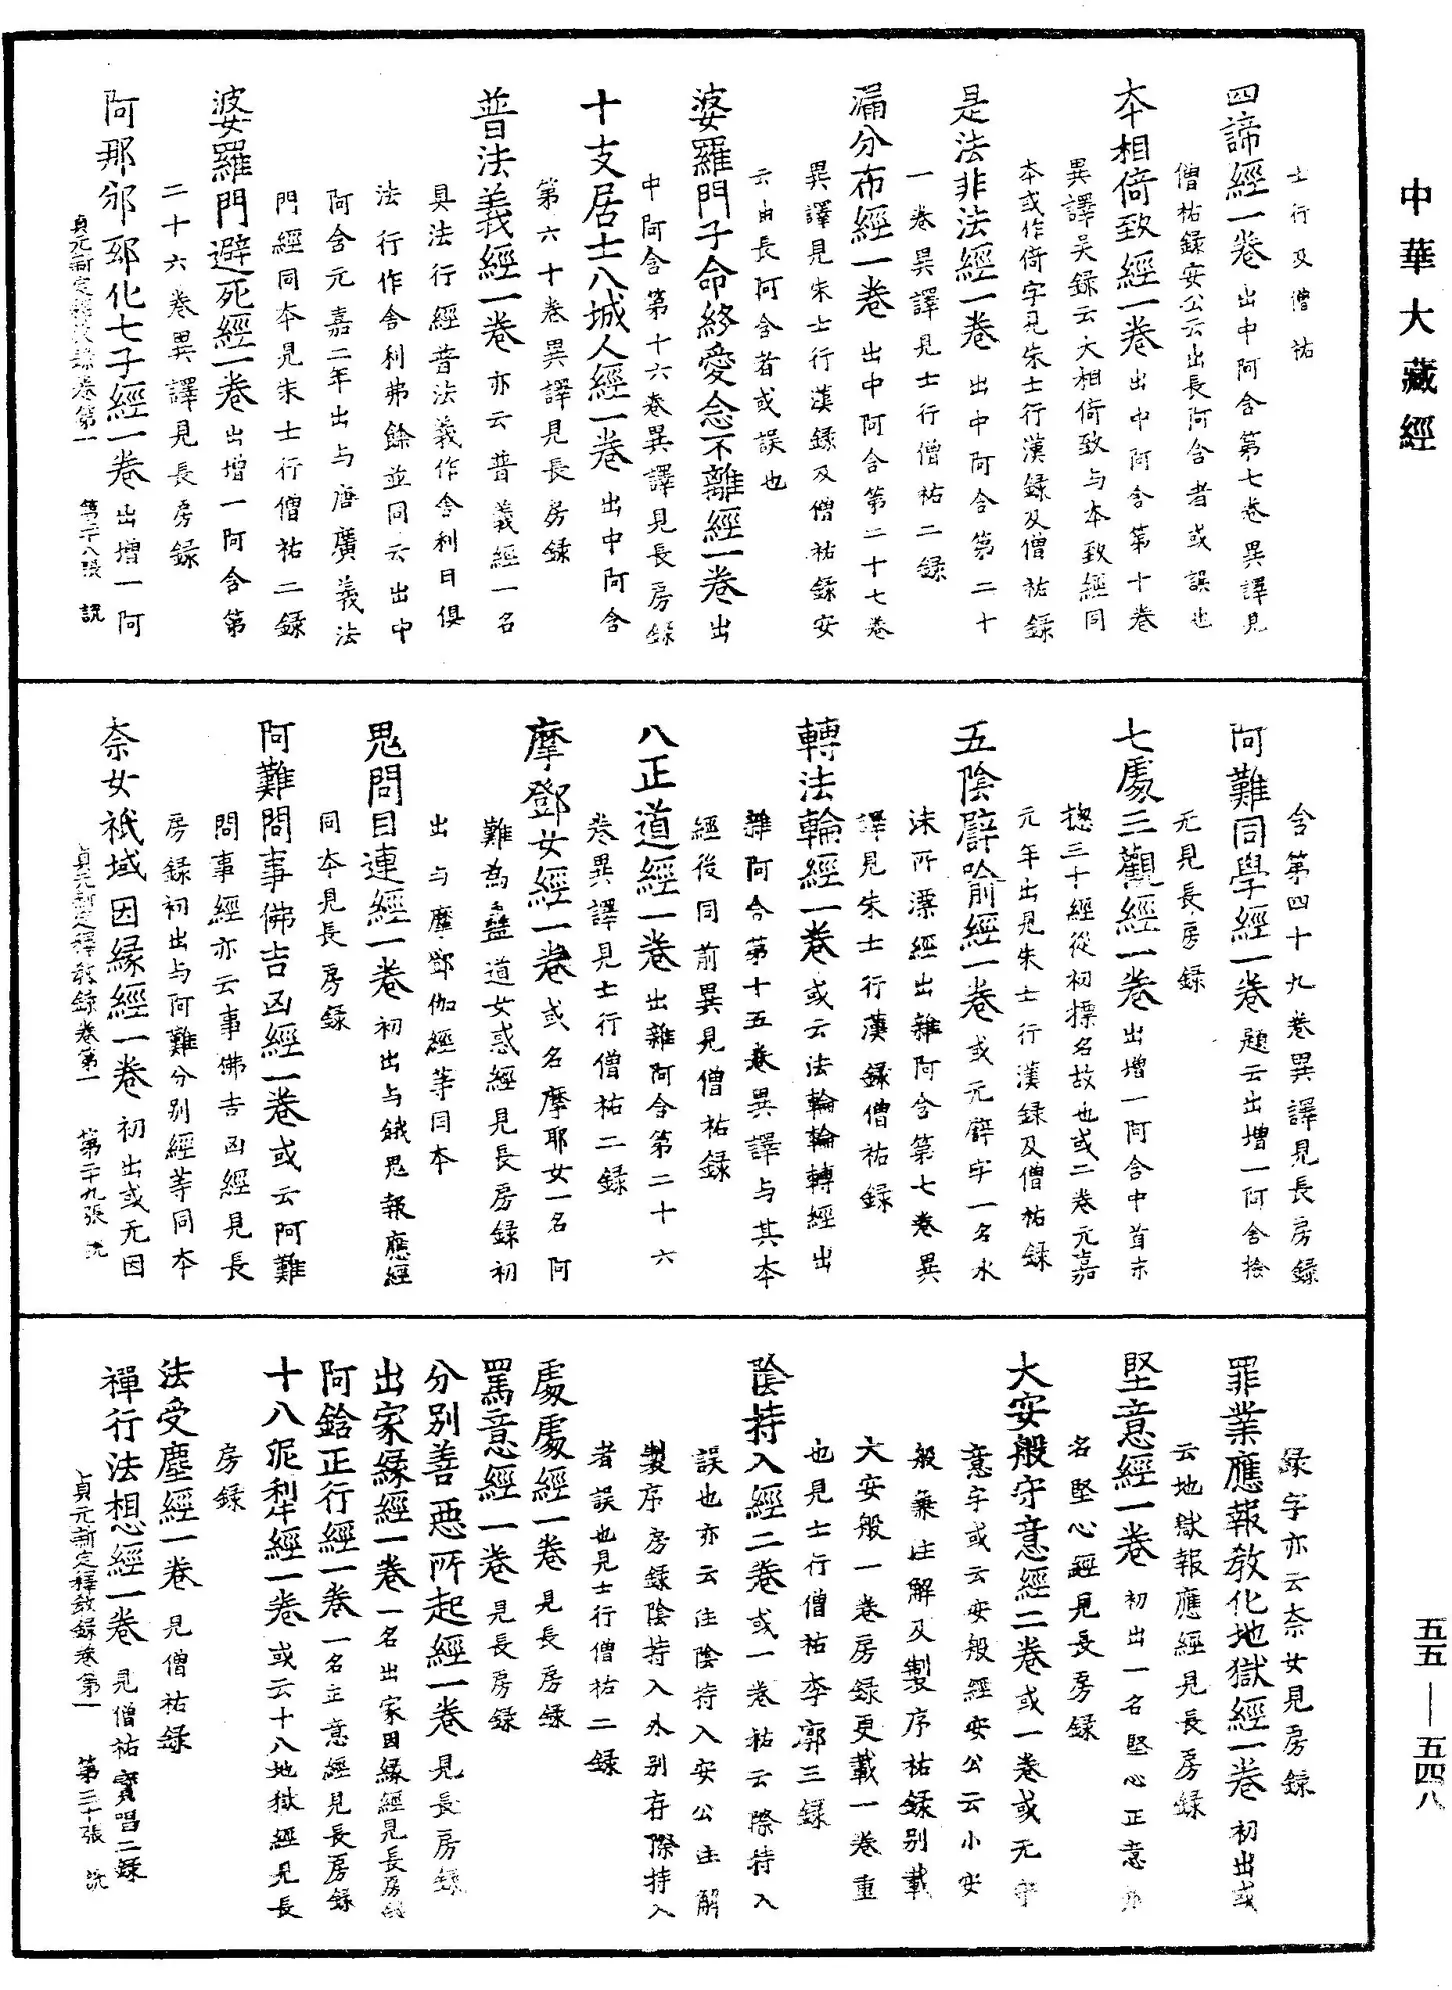 中華大藏經
五五—五四八
士行及僧祐
四諦經一卷 出中阿含第七卷異譯見
僧祐録安公云出長阿含者或誤也
本相倚致經一卷 出中阿含第十卷
異譯吴録云大相倚致与本致經同
本或作倚字見朱士行漢録及僧祐録
是法非法經一卷 出中阿含第二十
一卷異譯見士行僧祐二録
漏分布經一卷 出中阿含第二十七卷
異譯見朱士行漢録及僧祐録安
云由長阿含者或誤也
婆羅門子命終愛念不離經一卷 出
中阿含第十六卷異譯見長房録
十支居士八城人經一卷 出中阿含
第六十卷異譯見長房録
普法義經一卷 亦云普義經一名
具法行經普法義作舍利日俱
法行作舍利弗餘並同云出中
阿含元嘉二年出与唐廣義法
門經同本見朱士行僧祐二録
婆羅門避死經一卷 出增一阿含第
二十六卷異譯見長房録
阿那邠邸化七子經一卷 出增一阿
貞元新定釋教録卷第一 第二十八張 説
含第四十九卷異譯見長房録
阿難同學經一卷 題云出增一阿含捡
无見長房録
七處三觀經一卷 出增一阿含中首末
揔三十經從初摽名故也或二卷元嘉
元年出見朱士行漢録及僧祐録
五陰譬喻經一卷 或无譬字一名水
沫所漂經出雜阿含第七卷異
譯見朱士行漢録僧祐録
轉法輪經一卷 或云法輪輪轉經出
雜阿含第十五卷異譯与其本
經後同前異見僧祐録
八正道經一卷 出雜阿含第二十六
卷異譯見士行僧祐二録
摩鄧女經一卷 或名摩耶女一名阿
難為蠱道女惑經見長房録初
出与摩鄧伽經等同本
鬼問目連經一卷 初出与餓鬼報應經
同本見長房録
阿難問事佛吉凶經一卷 或云阿難
問事經亦云事佛吉凶經見長
房録初出与阿難分别經等同本
柰女祇域因縁經一卷 初出或无因
貞元新定釋教録卷第一 第二十九張 説
縁字亦云柰女見房録
罪業應報教化地獄經一卷 初出或
云地獄報應經見長房録
堅意經一卷 初出一名堅心正意亦
名堅心經見長房録
大安般守意經二卷 或一卷或无守
意字或云安般經安公云小安
般兼注解及製序祐録别載
大安般一卷房録更載一卷重
也見士行僧祐李廓三録
陰持入經二卷 或一卷祐云除持入
誤也亦云住陰持入安公注解
製序房録陰持入外别存除持入
者誤也見士行僧祐二録
處處經一卷 見長房録
罵意經一卷 見長房録
分别善惡所起經一卷 見長房録
出家縁經一卷 一名出家因縁經見長房録
阿鋡正行經一卷 一名正意經見長房録
十八泥犁經一卷 或云十八地獄經見長
房録
法受塵經一卷 見僧祐録
禪行法想經一卷 見僧祐寳唱二録
貞元新定釋教録卷第一 第三十張 説